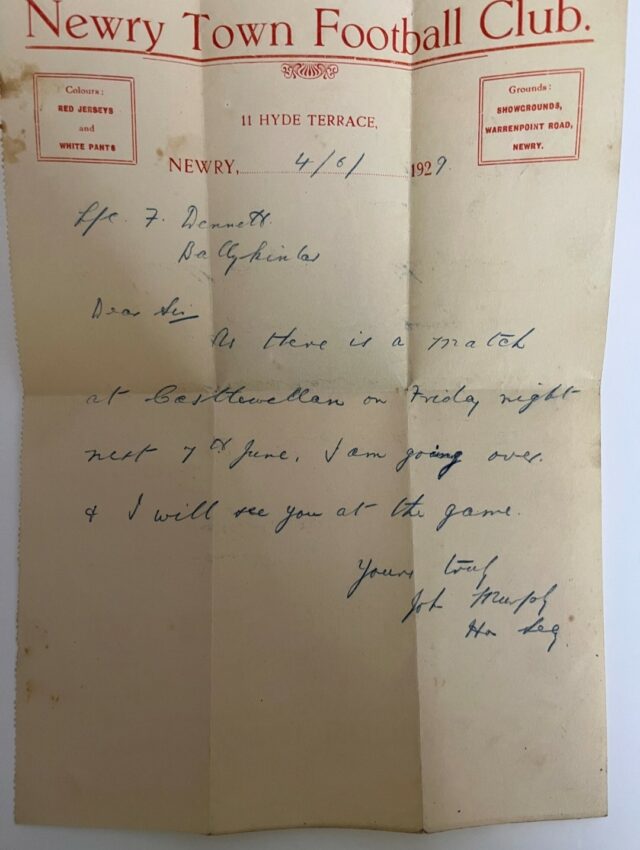 Newry Town Football Club.
Colours:
RED JERSEYS
and
WHITE PANTS
Grounds:
SHOWGROUNDS,
WARRENPOINT ROAD,
NEWRY.
11 HYDE TERRACE,
NEWRY, 4/6/ 1929.
L/c. F. Dennett
Ballykinlar
Dear Sir
As there is a match
at Castlewellan on Friday night
next 7th June, I am going over.
& I will see you at the game.
Yours truly
Joh Murphy
Hon Secy